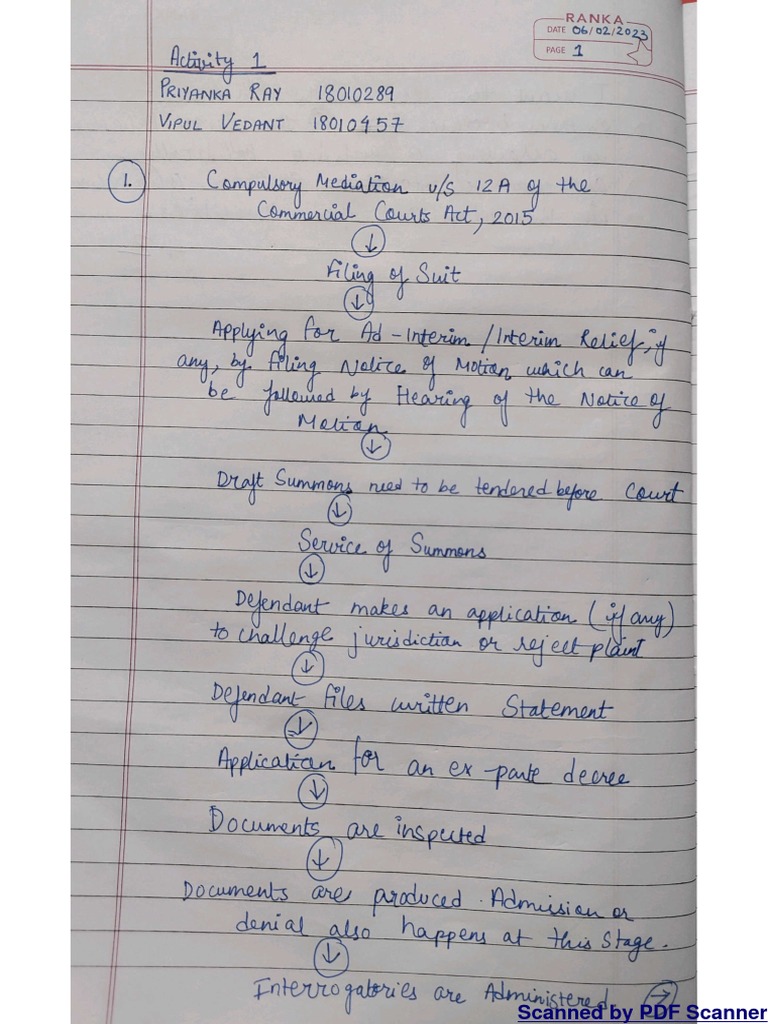 RANKA
DATE 06/02/2023
PAGE 1
Activity 1
PRIYANKA RAY 18010289
VIPUL VEDANT 18010457
1. Compulsory Mediation u/S 12A of the
Commercial Courts Act, 2015
↓
Filing of Suit
↓
Applying for Ad-Interim/Interim Relief, if
any, by filing Notice of Motion which can
be followed by Hearing of the Notice of
Motion
↓
Draft Summons need to be tendered before Court
↓
Service of Summons
↓
Defendant makes an application (if any)
to challenge jurisdiction or reject plaint
↓
Defendant files written Statement
↓
Application for an ex-parte decree
↓
Documents are inspected
↓
Documents are produced. Admission or
denial also happens at this stage.
↓
Interrogatories are Administered. →
Scanned by PDF Scanner